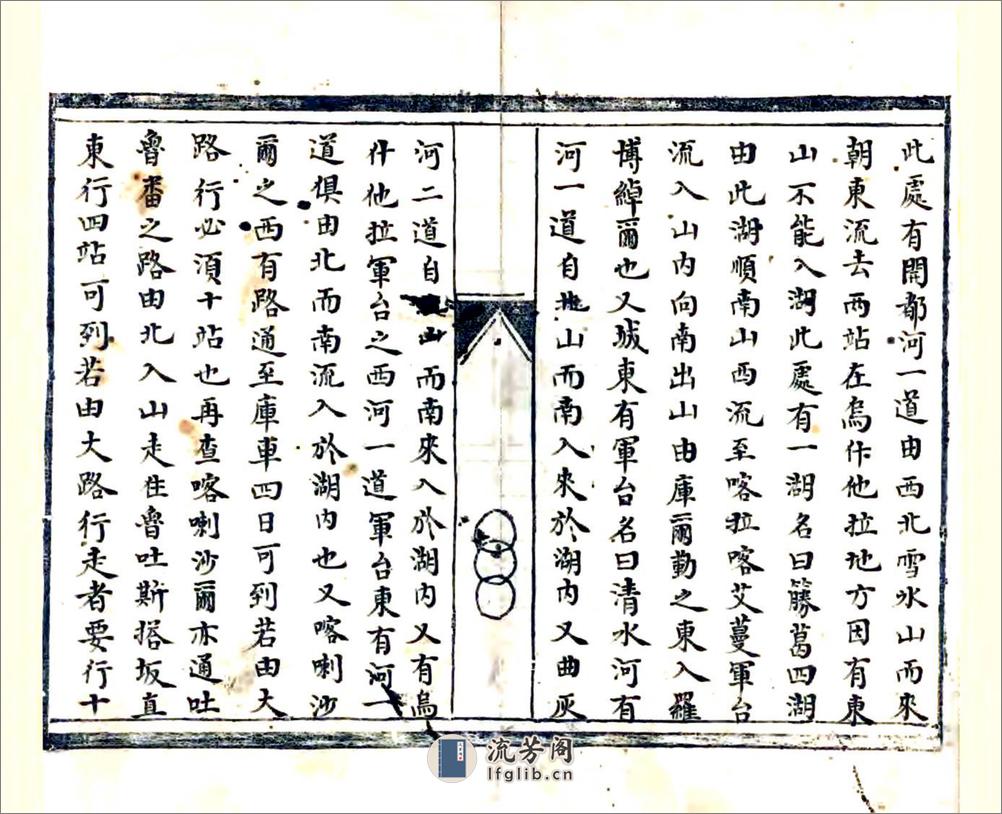 此處有開都河一道由西北雪水山而來
朝東流去两站在烏什他拉地方因有東
山不能入湖此處有一湖名曰籐葛四湖
由此湖順南山西流至喀拉喀艾蔓軍台
流入山内向南出山由庫爾勤之東入羅
博綽爾也又城東有軍台名曰清水河有
河一道自北山而南入來於湖内又曲灰
河二道自山而南來入於湖内又有烏
什他拉軍台之西河一道軍台東有河一
道俱由北而南流入於湖内也又喀喇沙
爾之西有路通至庫車四日可到若由大
路行必須十站也再查喀喇沙爾亦通吐
魯畨之路由北入山走住魯吐斯搭坂直
東行四站可列若由大路行走者要行十
流芳阁
lfglib.cn